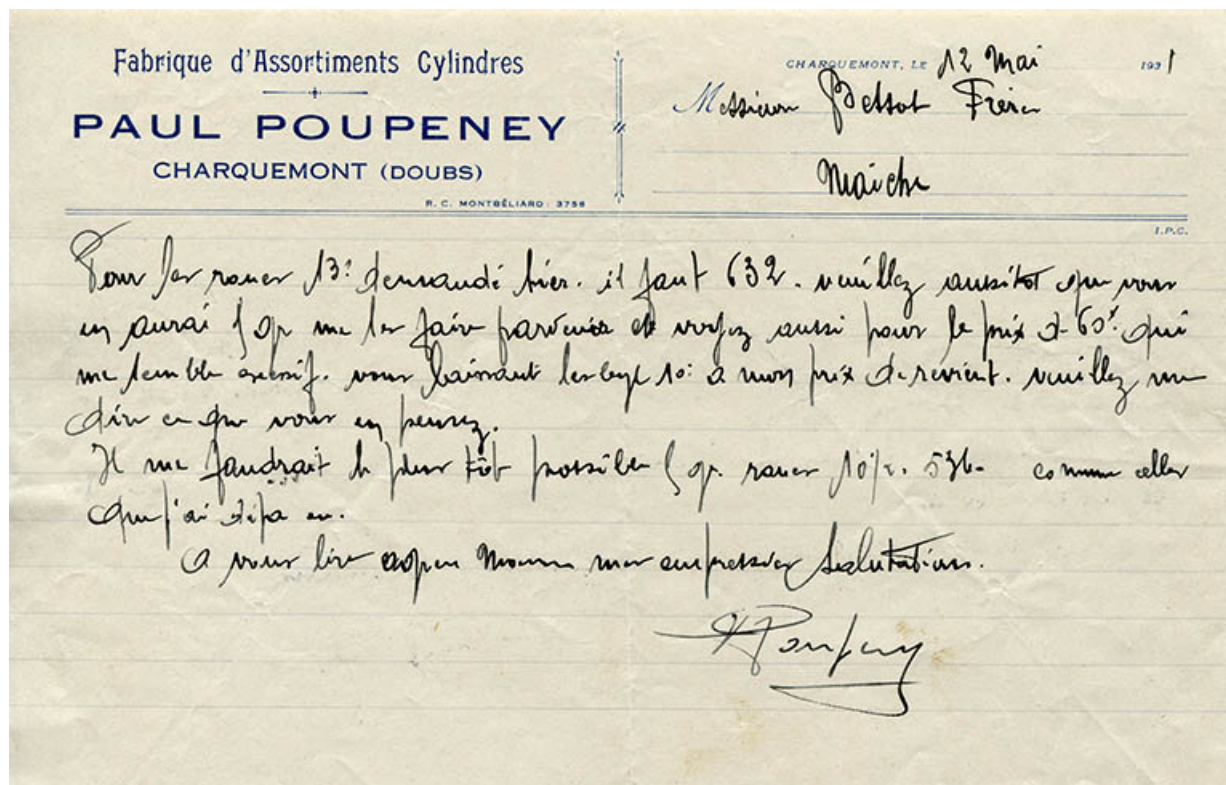 Fabrique d'Assortiments Cylindres
PAUL POUPENEY
CHARQUEMONT (DOUBS)
R. C. MONTBÉLIARD : 3756
CHARQUEMONT, LE 12 Mai 1931
Messieurs Frères
Maiche
I.P.C.
Pour les roues 13 demandé hier. il faut 632. veuillez aussitot que vous
en aurai me les faire parvenir et voyez aussi pour le prix de 60 qui
me semble . vous laissant les 10 a mon prix de revient. veuillez me
dire ce que vous en pensez.
Il me faudrait le plus tôt possible roues 10 536. comme celles
que j'ai déja eu.
A vous lire Messieurs mes empressées Salutations.
Poupeney